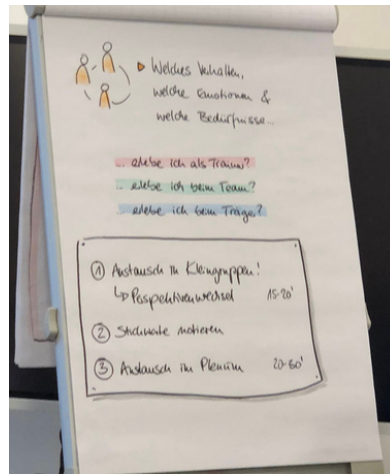 Welches Verhalten,
welche Emotionen &
welche Bedürfnisse...
... erlebe ich als Trainer?
... erlebe ich beim Team?
... erlebe ich beim Träger?
① Austausch in Kleingruppen!
↳ Perspektivenwechsel 15-20'
② Stichworte notieren
③ Austausch im Plenum 20-60'